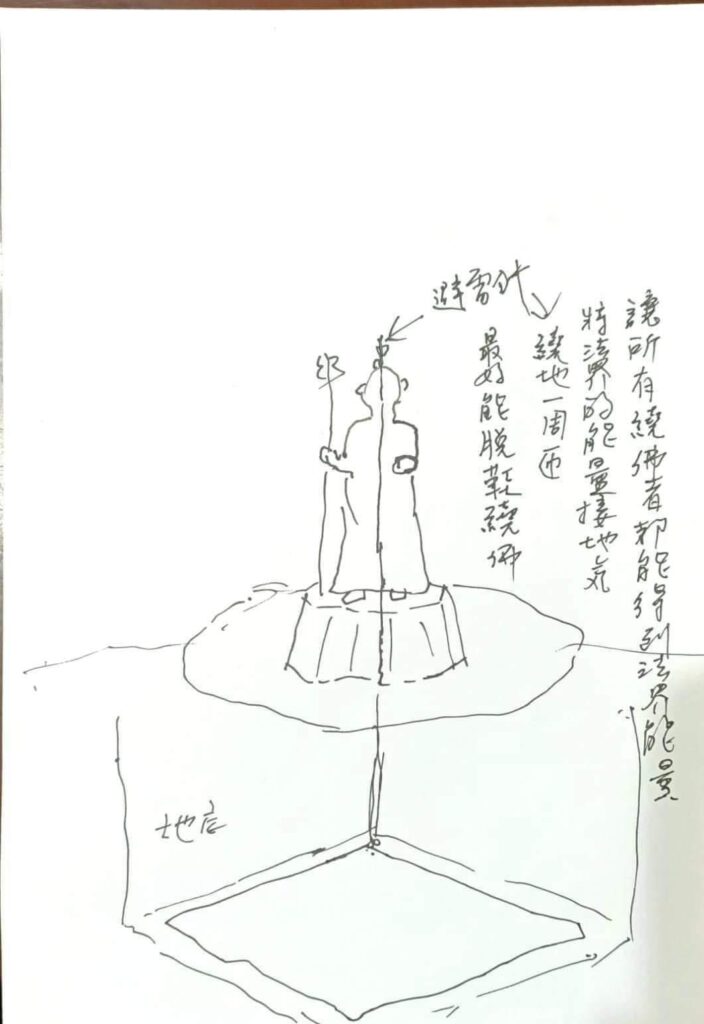 避雷針
讓所有繞佛者都能得到法界能量
將法界的能量接地氣
繞地一周匝
最好能脫鞋繞佛
地底